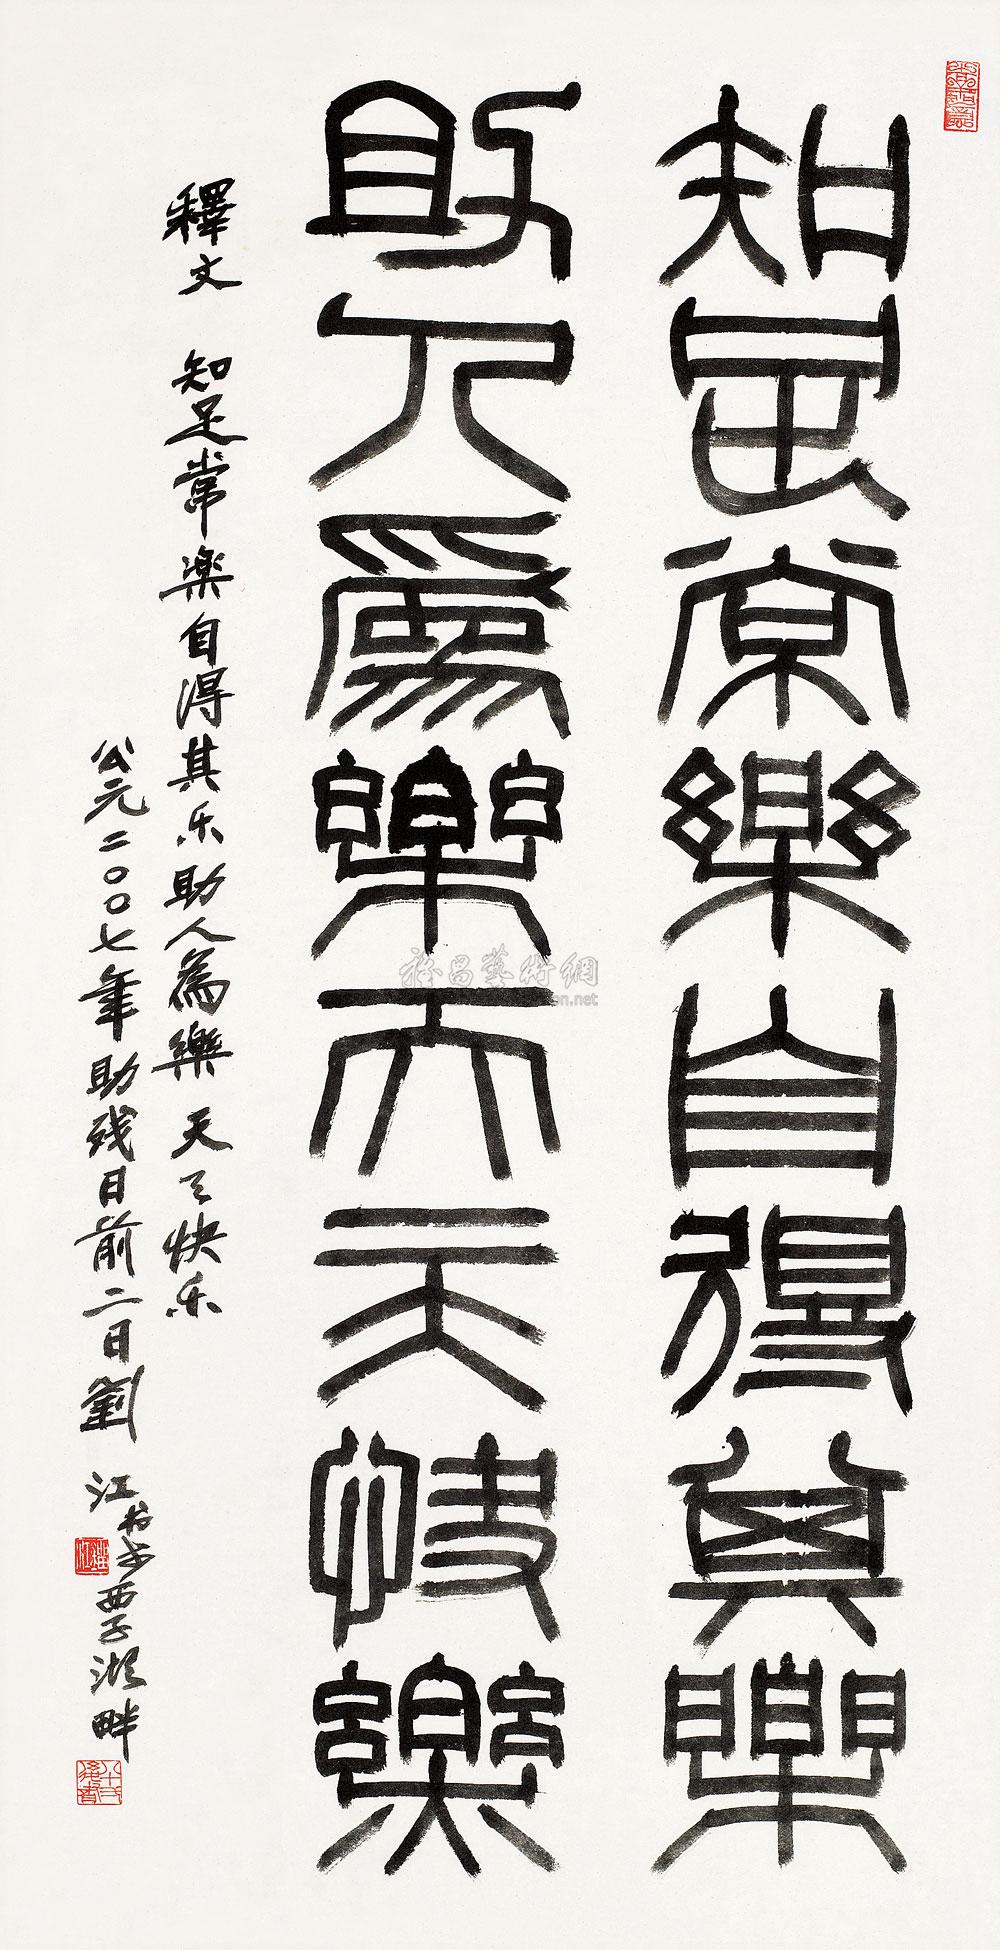 知足常樂自得其樂
助人為樂天天快樂
釋文 知足常楽自得其乐助人為樂天天快乐
公元二〇〇七年助残日前二日劉江书于西子湖畔
雅昌藝術網